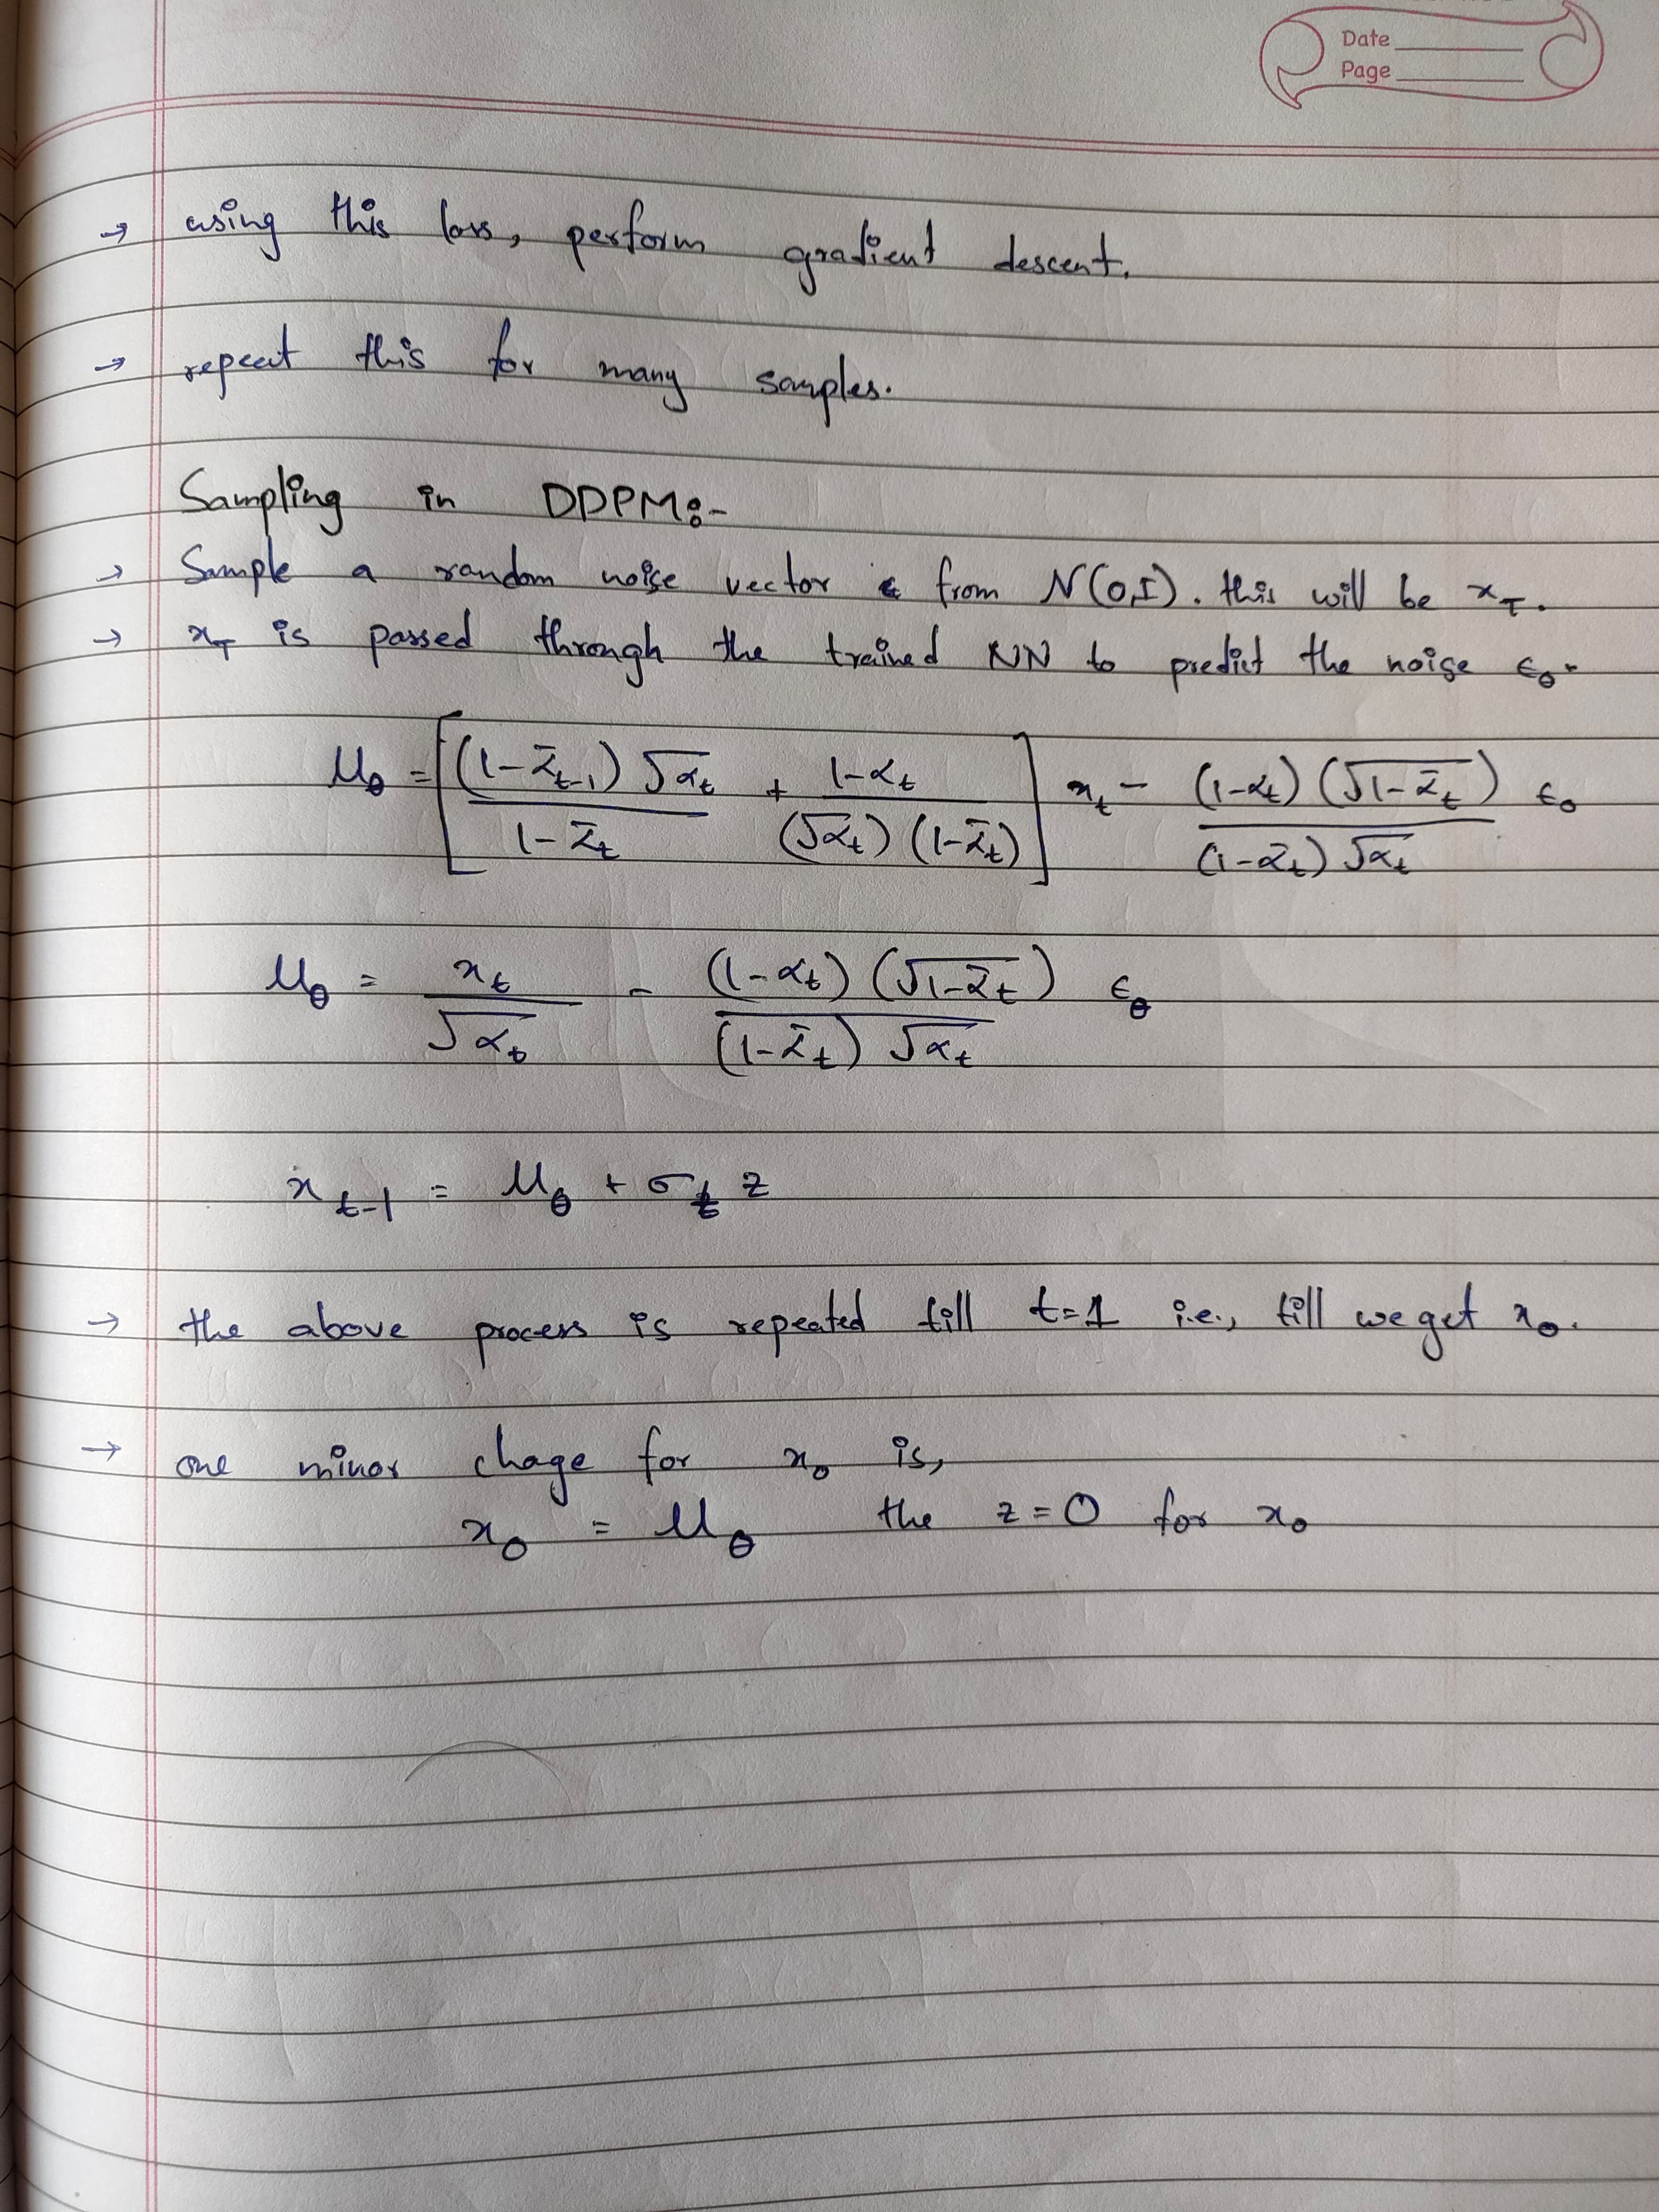 Date
Page
→ using this loss, perform gradient descent.
→ repeat this for many samples.
Sampling in DDPM:-
→ Sample a random noise vector ϵ from N(0,I). this will be x_T.
→ x_T is passed through the trained NN to predict the noise ϵ_θ.
μ_θ = [ (1-ᾱ_{t-1}) √α_t / (1-ᾱ_t) + (1-α_t) / ((√α_t) (1-ᾱ_t)) ] x_t - (1-α_t) (√(1-ᾱ_t)) / ((1-ᾱ_t) √α_t) ϵ_θ
μ_θ = x_t / √α_t - (1-α_t) (√(1-ᾱ_t)) / ((1-ᾱ_t) √α_t) ϵ_θ
x_{t-1} = μ_θ + σ_t z
→ the above process is repeated till t=1 i.e., till we get x_0.
→ one minor chage for x_0 is,
x_0 = μ_θ the z=0 for x_0